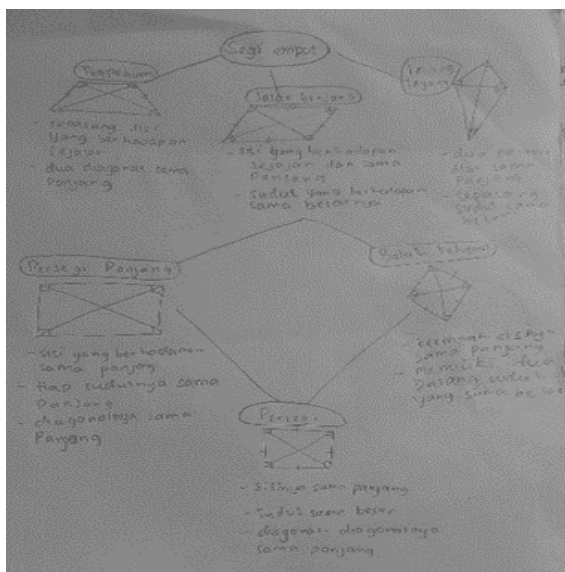 Segi empat
Trapesium
- sepasang sisi
yang berhadapan
sejajar
- dua diagonal sama
panjang
Jajar Genjang
- sisi yang berhadapan
sejajar dan sama
panjang
- sudut yang berhadapan
sama besarnya
layang
layang
- dua pasang
sisi sama
panjang
- sepasang
sudut sama
besar
Persegi Panjang
- sisi yang berhadapan
sama panjang
- tiap sudutnya sama
panjang
- diagonalnya sama
Panjang
Belah ketupat
- keempat sisinya
sama panjang
- memiliki dua
pasang sudut
yang sama besar
Persegi
- sisinya sama panjang
- sudut sama besar
- diagonal-diagonalnya
sama panjang